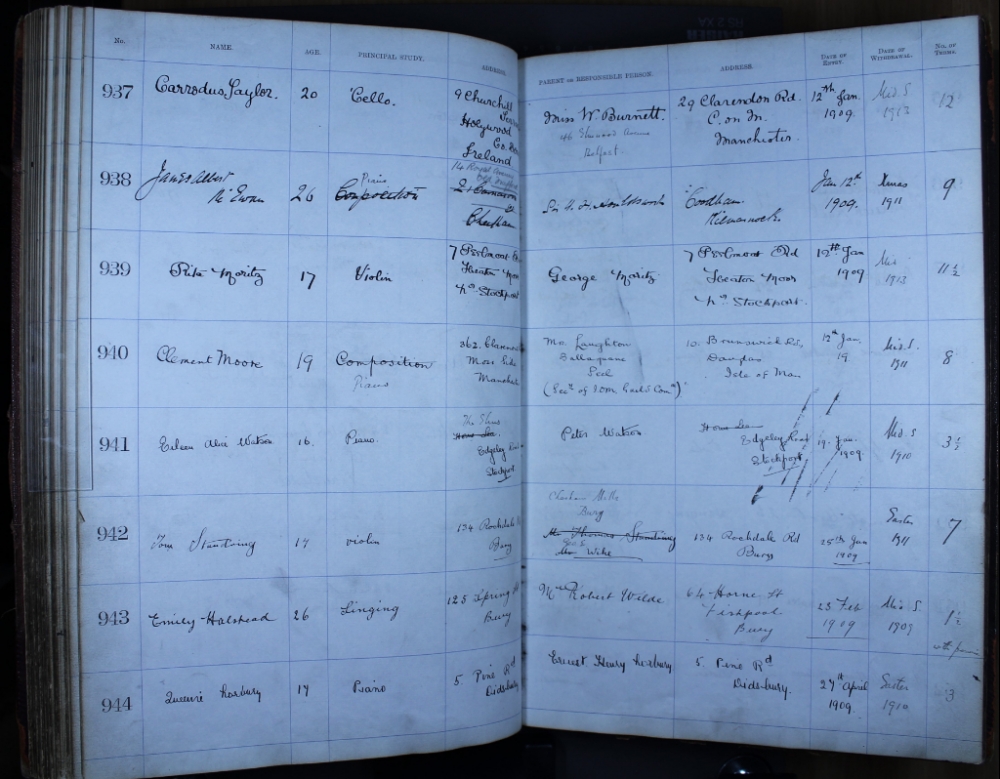 No. NAME. AGE. PRINCIPAL STUDY. ADDRESS. PARENT OR RESPONSIBLE PERSON. ADDRESS. DATE OF ENTRY. DATE OF WITHDRAWAL. No. OF TERMS.
937 Carrodus Taylor. 20 'Cello. 9 Churchill
Holywood
Co.
Ireland
Miss W Burnett. 29 Clarendon Rd. 12th Jan Mid. S 12
C. on M. 1909. 1913
Manchester.
Belfast.
938 James Albert 26 Piano
McEwan Composition
14 Royal Avenue
Cheetham
Coodham Jan 12th Xmas 9
Kilmarnock. 1909. 1911
939 Rita Moritz 17 Violin 7 Parlmont
Heaton Moor
Nr Stockport
George Moritz 7 Parlmont Rd 12th Jan Mid 11½
Heaton Moor 1909 1913
Nr Stockport.
940 Clement Moore 19 Composition 362. Claremont
Piano Moss Side
Manchester
Mr. Laughton 10 Brunswick Rd. 12th Jan. Mid S. 8
Ballaquane Douglas 19 1911
Peel Isle of Man
941 Eileen Alice Watson 16. Piano. The Elms
Edgeley Road
Stockport
Peter Watson Edgeley Road 19. Jan. Mid. S 3½
Stockport 1909. 1910
942 Tom Standring 17 Violin 134 Rochdale
Bury
Chesham Mills
Bury
Mr Thomas Standring 134 Rochdale Rd 25th Jan Easter 7
Wike Bury 1909 1911
943 Emily Halstead 26 Singing 125 Spring St
Bury
Mrs Robert Wilde 64 Horne St 23 Feb Mid S. 1½
Fishpool 1909 1909
Bury
944 Queenie Loxbury 17 Piano 5. Pine Rd
Didsbury
Ernest Henry Loxbury 5. Pine Rd 27th April Easter 3
Didsbury. 1909. 1910